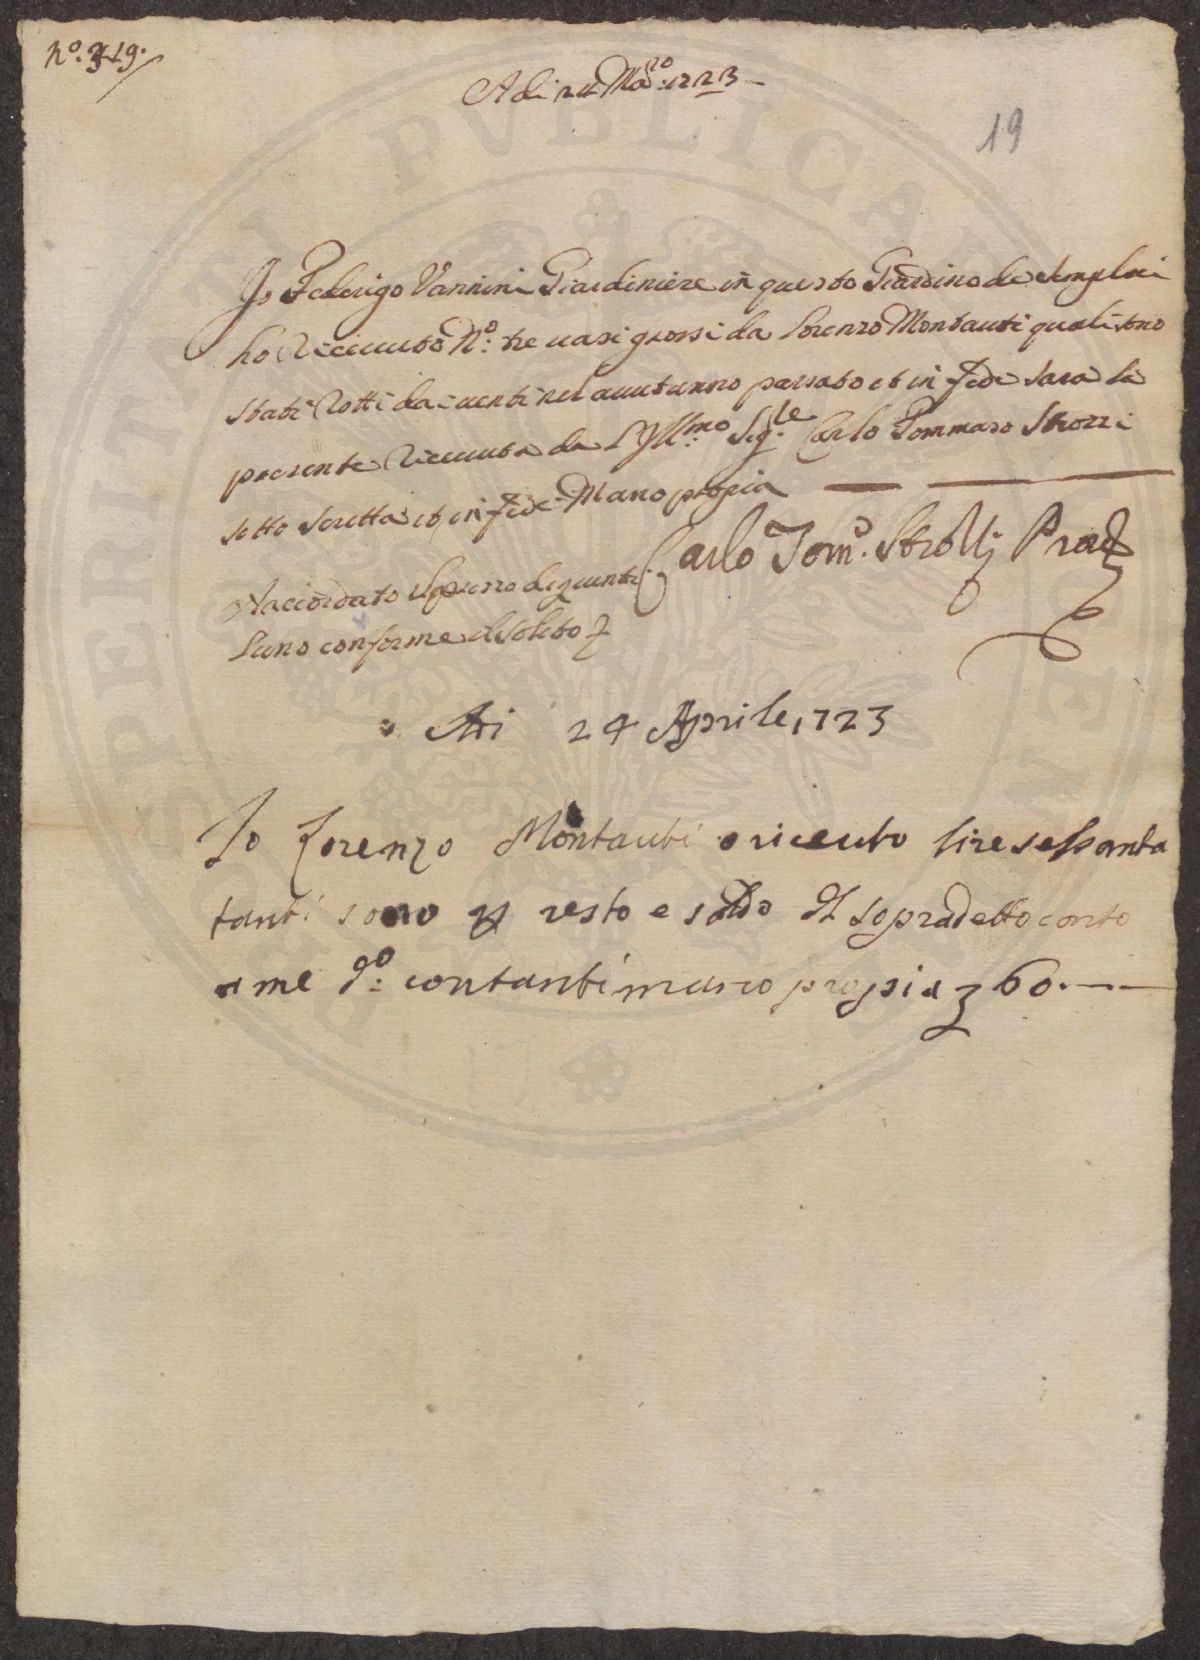 N.º 319.
19
Adi 24 Ma.zo 1723
Io Federigo Vannini Giardiniere in questo Giardino de Semplici
ho Riceuuto N.º tre uasi grossi da Lorenzo Montauti quali sono
stati Rotti da i uenti nel auutunno passato et in fede sara la
presente Riceuuta da L Ill.mo Sig.re Carlo Tommaso Strozzi
sotto scritta et in fede Mano propia
Carlo Tom.o Strozzi
accordato il prezzo di
Luno conforme il solito
Adi 24 Aprile 1723
Io Lorenzo Montauti o riceuto lire sessanta
tanti sono p resto e saldo del sopradetto conto
a me d.º contanti mano propia 60.